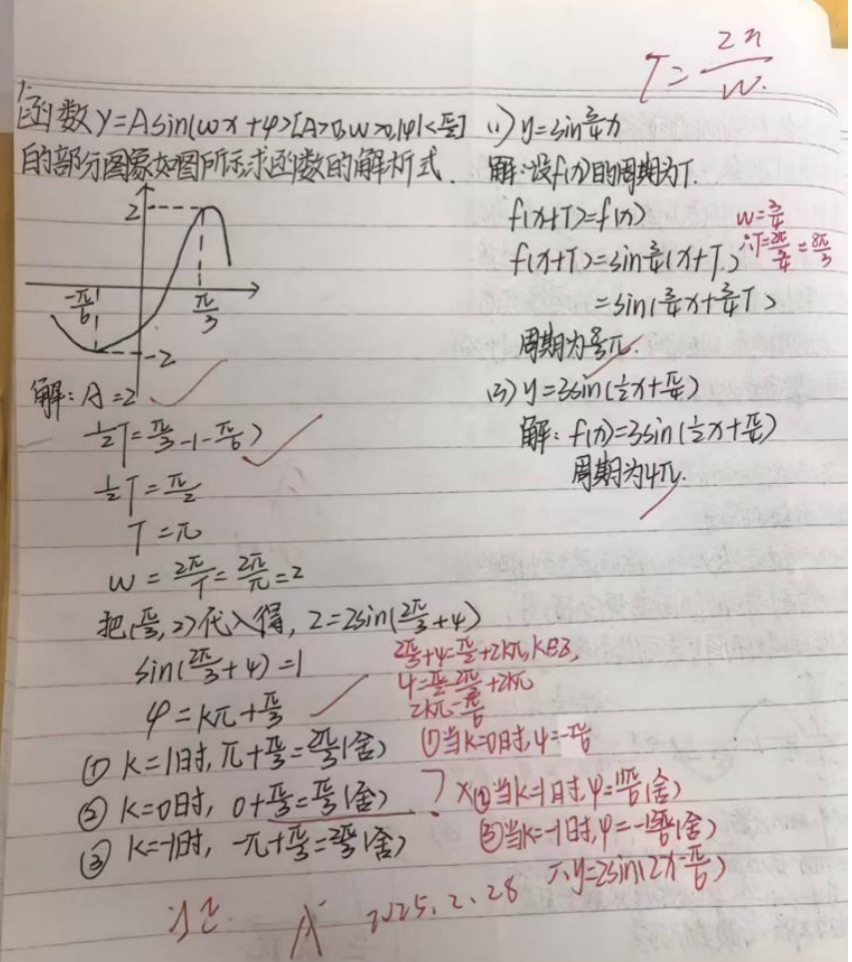 T=2π/W.
1.
函数y=Asin(ωx+φ)[A>0,W>0,|φ|<π/2]
的部分图象如图所示求函数的解析式.
2
-π/6
π/3
-2
解:A=2
½T=π/3-(-π/6)
½T=π/2
T=π
W=2π/T=2π/π=2
把(π/3,2)代入得,2=2sin(2π/3+φ)
sin(2π/3+φ)=1
φ=kπ+π/3
① K=1时,π+π/3=2π/3(舍)
② K=0时, 0+π/3=π/3(舍)
③ K=-1时, -π+π/3=2π/3(舍)
2π/3+φ=π/2+2kπ,k∈Z,
φ=π/2-2π/3+2kπ
2kπ-π/6
①当K=0时,φ=-π/6
②当K=1时,φ=11π/6(舍)
③当K=-1时,φ=-13π/6(舍)
∴y=2sin(2x-π/6)
(1) y=sin¾x
解:设f(x)的周期为T.
f(x+T)=f(x)
f(x+T)=sin¾(x+T)
=sin(¾x+¾T)
周期为8/3π.
W=¾
∴T=2π/¾=8π/3
(3) y=3sin(½x+π/4)
解: f(x)=3sin(½x+π/4)
周期为4π.
A
2025.2.28